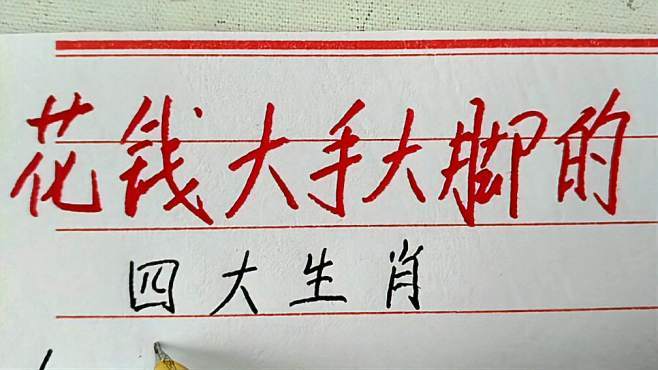 花钱大手大脚的
四大生肖